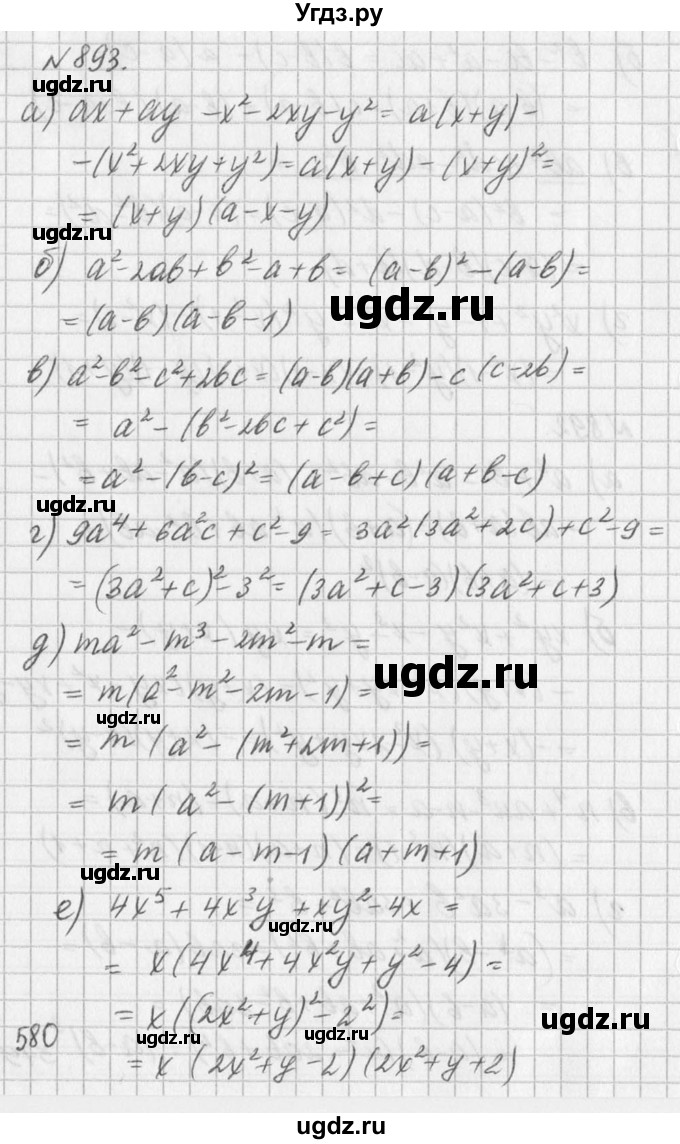 Угдз.ру
№893.
а) ax + ay - x² - 2xy - y² = a(x+y) -
- (x² + 2xy + y²) = a(x+y) - (x+y)² =
= (x+y)(a-x-y)
б) a² - 2ab + b² - a + b = (a-b)² - (a-b) =
ugdz.ru
= (a-b)(a-b-1)
ugdz.ru
в) a² - b² - c² + 2bc = (a-b)(a+b) - c(c-2b) =
= a² - (b² - 2bc + c²) =
= a² - (b-c)² = (a-b+c)(a+b-c)
ugdz.ru
г) 9a⁴ + 6a²c + c² - 9 = 3a²(3a² + 2c) + c² - 9 =
= (3a² + c)² - 3² = (3a² + c - 3)(3a² + c + 3)
д) ma² - m³ - 2m² - m =
ugdz.ru
= m(a² - m² - 2m - 1) =
ugdz.ru
= m(a² - (m² + 2m + 1)) =
= m(a² - (m+1))² =
= m(a - m - 1)(a + m + 1)
ugdz.ru
е) 4x⁵ + 4x³y + xy² - 4x =
ugdz.ru
= x(4x⁴ + 4x²y + y² - 4) =
= x((2x² + y)² - 2²) =
ugdz.ru
580
ugdz.ru ugdz.ru
= x(2x² + y - 2)(2x² + y + 2)
ugdz.ru